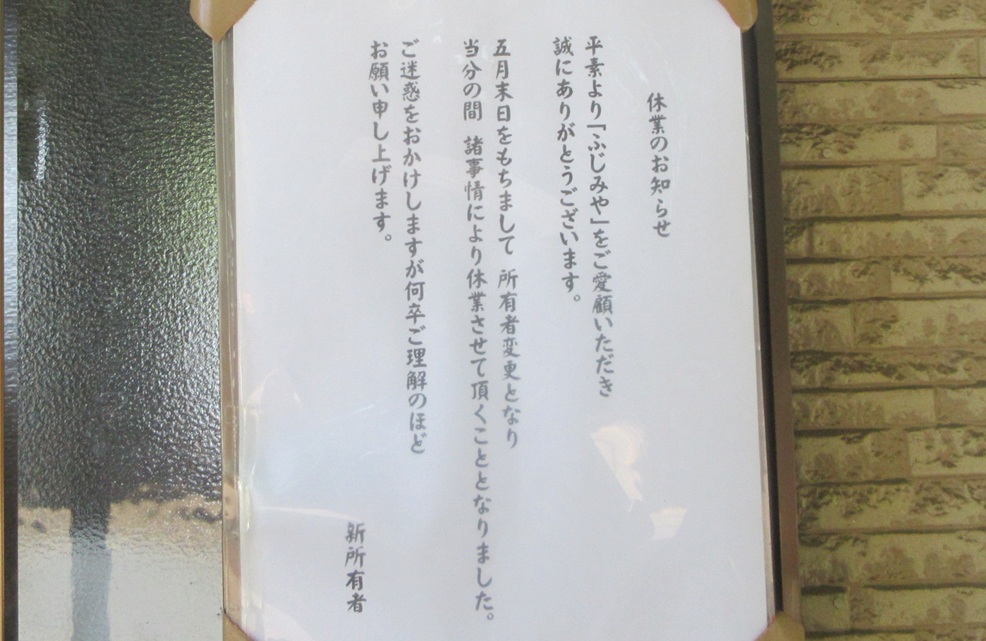 休業のお知らせ
平素より「ふじみや」をご愛顧いただき
誠にありがとうございます。
五月末日をもちまして 所有者変更となり
当分の間 諸事情により休業させて頂くこととなりました。
ご迷惑をおかけしますが何卒ご理解のほど
お願い申し上げます。
新所有者